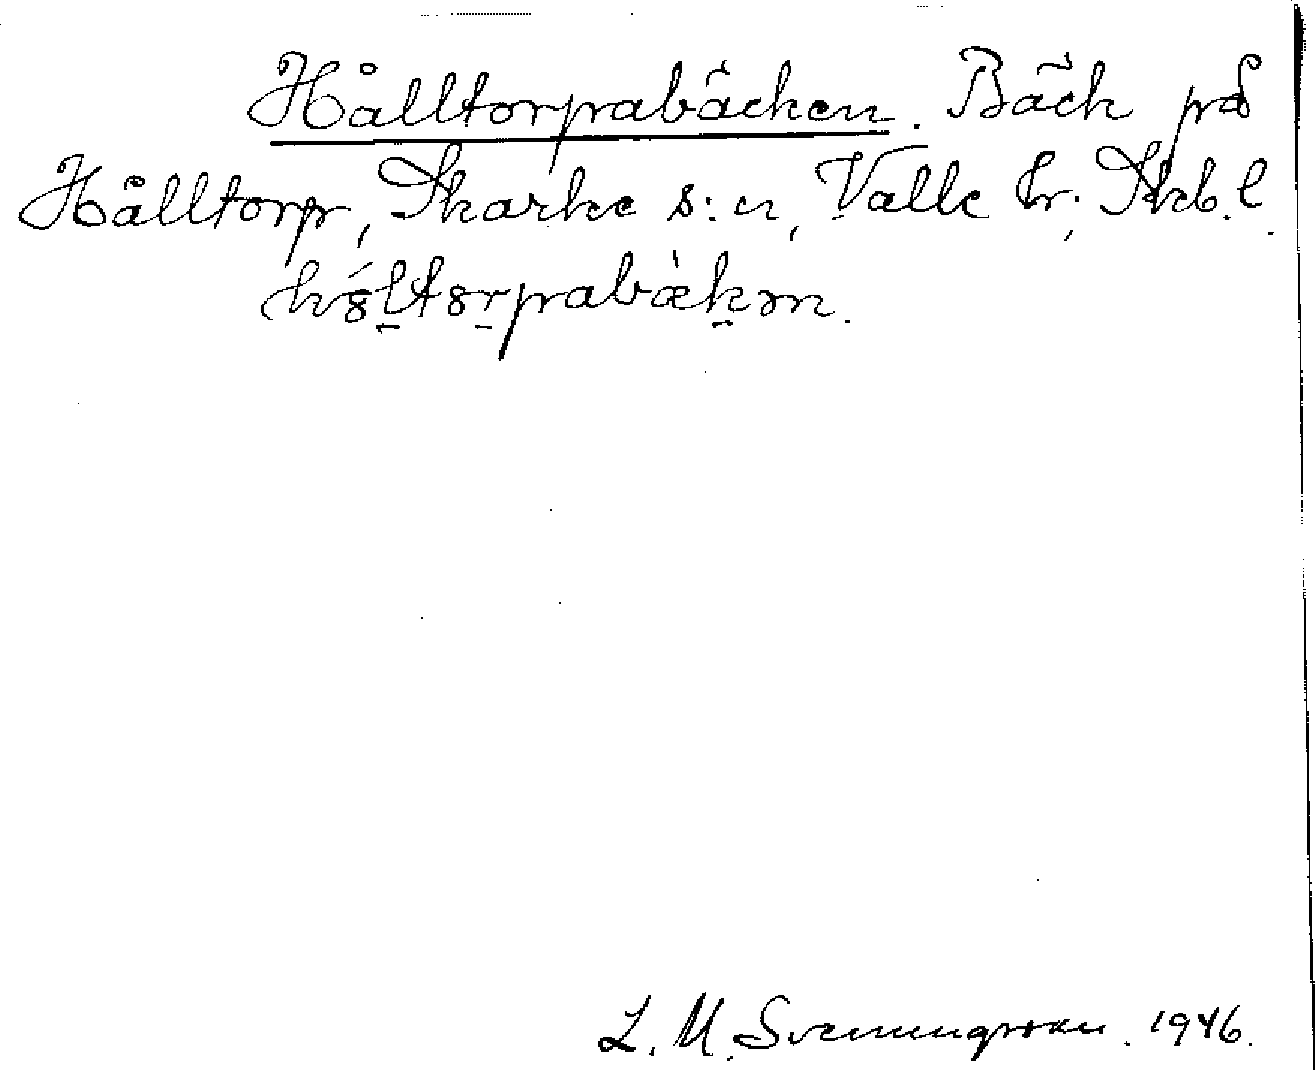 Hålltorpabäcken. Bäck på
Hålltorp, Skarke s:n, Valle hr, Skb. l.
hóltorpabæ̀kən.
L. M. Svenungsson. 1946.